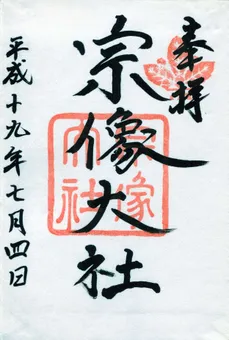 奉拝
宗像大社
平成十九年七月四日
宗像
大社